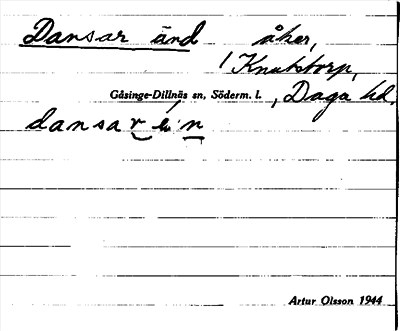 Dansar änd åker,
/ Knutstorp,
Gåsinge-Dillnäs sn, Söderm. l. , Daga hd.
dansar
Artur Olsson 1944